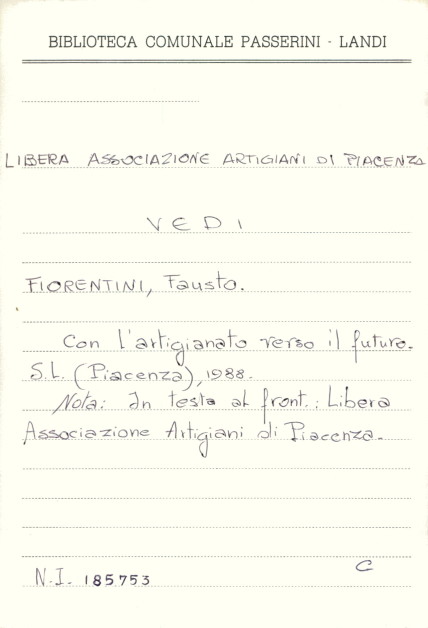 BIBLIOTECA COMUNALE PASSERINI - LANDI
LIBERA ASSOCIAZIONE ARTIGIANI DI PIACENZA
VEDI
FIORENTINI, Fausto.
Con l'artigianato verso il futuro.
S.L. (Piacenza), 1988.
Nota: In testa al front.: Libera
Associazione Artigiani di Piacenza.
C
N.I. 185753